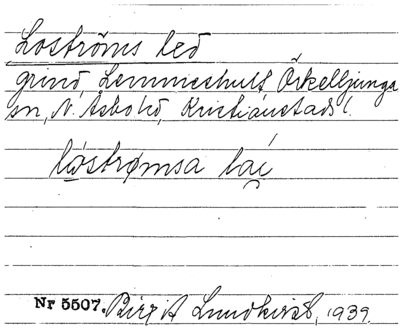 Loströms led
grind, Lemmeshult Örkelljunga
sn, N. Åsbo hd, Kristianstads l.
løstrømsa lái
Nr 5507. Birgit Lundkvist, 1939.